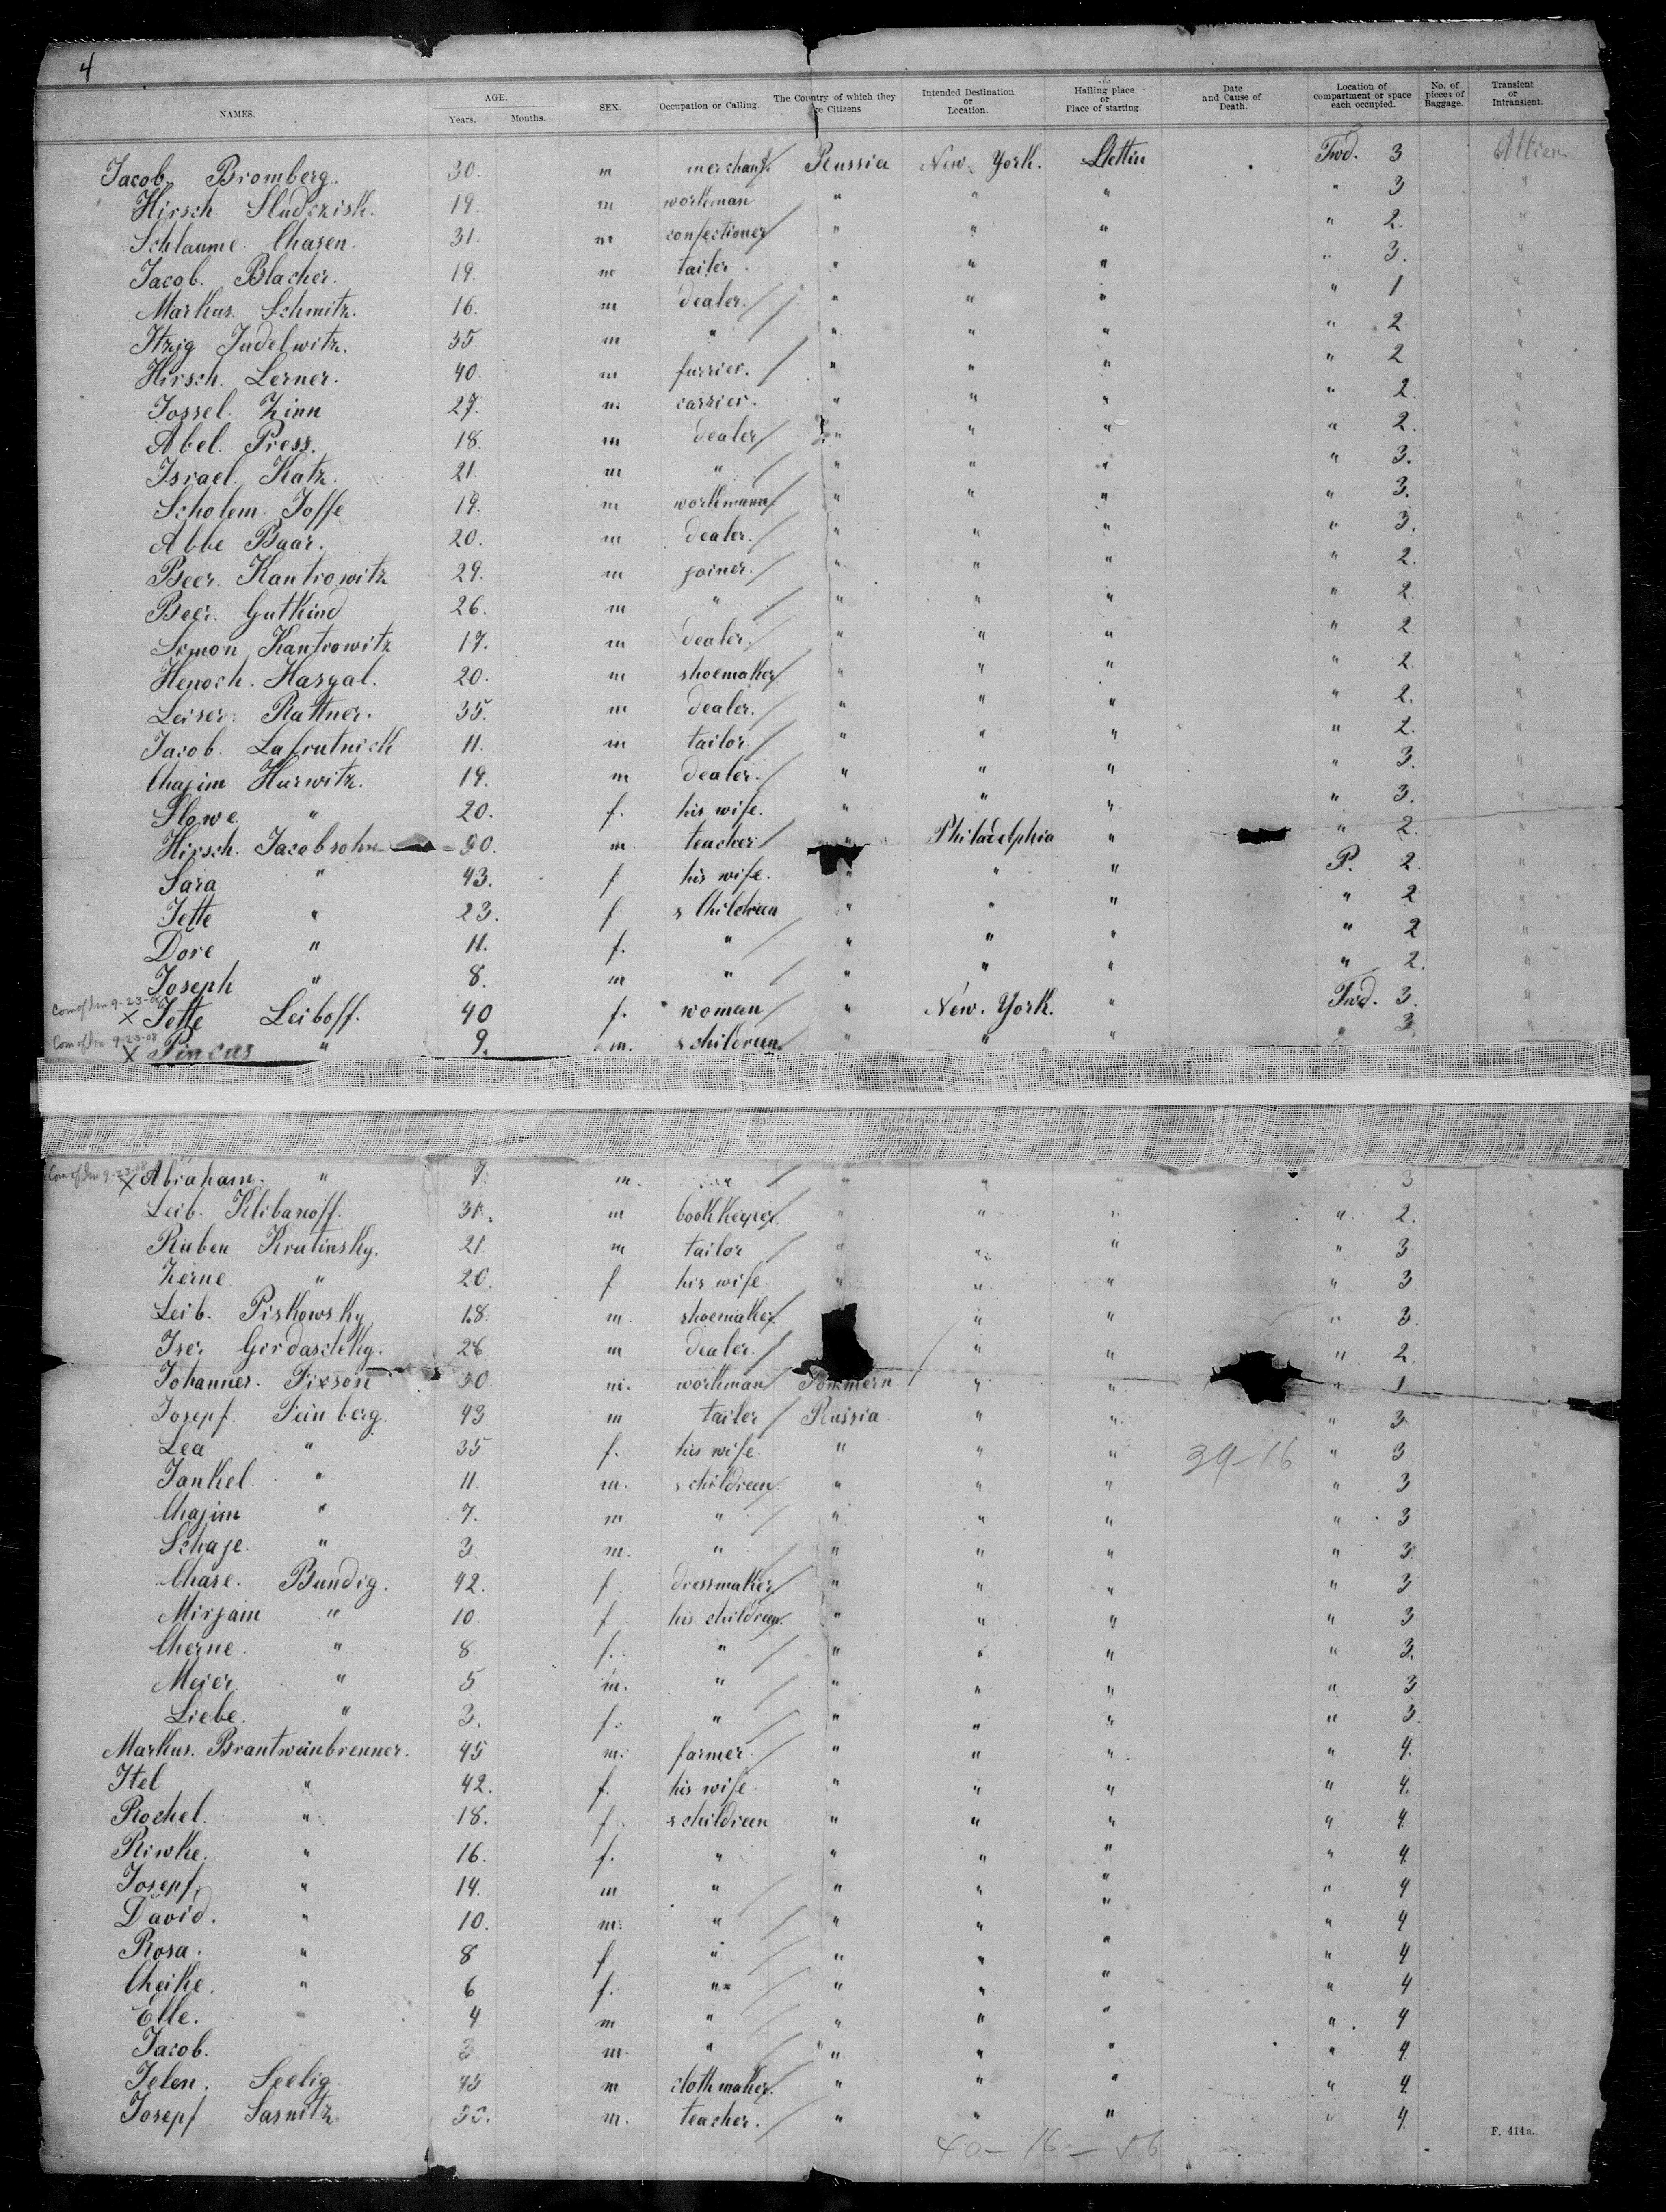 4
NAMES. AGE. Years. Months. SEX. Occupation or Calling. The Country of which they are Citizens Intended Destination or Location. Hailing place or Place of starting. Date and Cause of Death. Location of compartment or space each occupied. No. of pieces of Baggage. Transient or Intransient.
Jacob Bromberg. 30. m merchant. Russia New. York. Stettin Twd. 3
Hirsch. Sludzisk. 19. m workman " " " " 3 "
Schlaume. Chasen. 31. m confectioner " " " " 2. "
Jacob. Blacher. 19. m tailer " " " " 3. "
Markus. Schmitz. 16. m dealer. " " " " 1 "
Itzig Judelwitz. 35. m " " " " " 2 "
Hirsch. Lerner. 40. m furrier. " " " " 2 "
Jossel. Zinn 27. m. carrier. " " " " 2. "
Abel. Press. 18. m dealer " " " " 2. "
Israel. Katz. 21. m " " " " " 3. "
Scholem. Joffe 19. m workmann " " " " 3. "
Abbe Baar. 20. m dealer. " " " " 3. "
Beer. Kantrowitz 29. m joiner. " " " " 2. "
Beer. Gutkind 26. m " " " " " 2. "
Simon Kantrowitz 17. m dealer. " " " " 2. "
Henoch. Hasgal. 20. m shoemaker " " " " 2. "
Leiser. Rattner. 35. m dealer. " " " " 2. "
Jacob. Lafrutnick 11. m tailor. " " " " 2. "
Chajim Hurwitz. 19. m dealer. " " " " 3. "
Slowe " 20. f. his wife. " " " " 3. "
Hirsch. Jacobsohn 50. m. teacher " Philadelphia " " 2. "
Sara " 43. f his wife. " " " P. 2. "
Jette " 23. f s Children " " " " 2 "
Dore " 11. f. " " " " " 2 "
Joseph " 8. m " " " " " 2. "
Com of Im 9-23-08 X Jette Leiboff. 40 f. woman " New. York. " Twd. 3. "
Com of Im 9-23-08 X Pincus " 9. m. s children. " " " " 3
Com of Im 9-23-08 X Abraham. " 7. m. " " " " 3 "
Leib. Klibanoff. 31. m bookkeeper " " " " 2. "
Ruben Krutinsky. 21 m tailor " " " " 3 "
Zerne " 20. f his wife. " " " " 3 "
Leib. Piskowsky. 18. m. shoemaker " " " 3. "
Iser Gordaschky. 26 m dealer. " " " 2. "
Johannes. Fixson 30. m. workman Pommern " " " 1 "
Josepf. Feinberg. 43. m tailer Russia " " " 3 "
Lea " 35 f. his wife. " " " 39-16 " 3 "
Jankel. " 11. m. s children " " " " 3 "
Chajim " 7. m " " " " " 3 "
Schaje. " 3. m. " " " " " 3 "
Chase. Bundig. 42. f dressmaker " " " " 3 "
Mirjam " 10. f his children. " " " " 3 "
Cherne. " 8 f. " " " " " 3. "
Meier " 5 m. " " " " " 3 "
Liebe. " 3. f. " " " " " 3. "
Markus. Brantweinbrenner. 45 m. farmer. " " " " 4. "
Itel " 42. f. his wife. " " " " 4. "
Rochel. " 18. f. s children " " " " 4 "
Riwke. " 16. f. " " " " " 4. "
Josepf. " 14. m " " " " " 4 "
David. " 10. m. " " " " " 4 "
Rosa. " 8 f " " " " " 4 "
Cheike. " 6 f. " " " " " 4 "
Elle. " 4 m " " " " " 4 "
Jacob. 3 m. " " " " " 4. "
Jelen. Seelig 45 m clothmaker. " " " " 4. "
Josepf Sasnitz m. teacher. " " " " 4.
40-16-56
F. 414a.